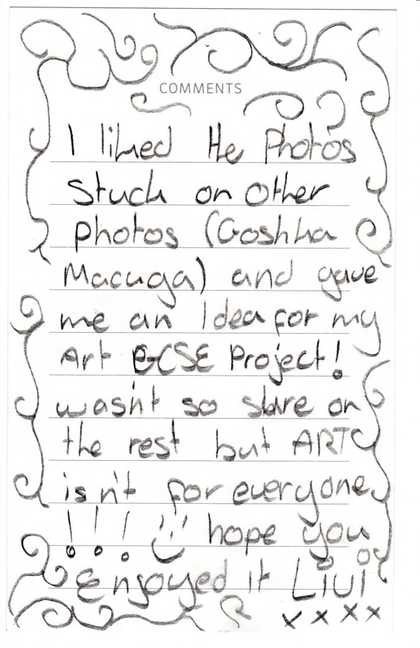 COMMENTS
I liked the Photos
Stuck on other
photos (Goshka
Macuga) and gave
me an Idea for my
Art GCSE Project!
wasn't so sure on
the rest but ART
isn't for everyone
!!! hope you
Enjoyed it Livi
xxxx